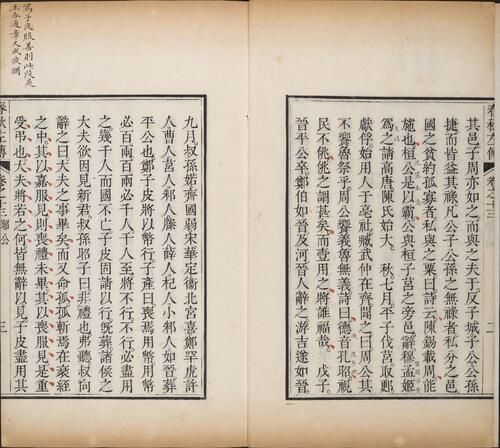 春秋左傳 卷之十三
其邑子周亦如之而與之夫于反子城子公公孫
捷而皆益其祿凡公子公孫之無祿者私分之邑
國之貧約孤寡者私與之粟曰詩云陳錫載周能
施也桓公是以霸公與桓子莒之旁邑辭穆孟姬
爲之請高唐陳氏始大 秋七月平子伐莒取郠
獻俘始用人于亳社臧武仲在齊聞之曰周公其
不饗魯祭乎周公饗義魯無義詩曰德音孔昭視
民不佻佻之謂甚矣而壹用之將誰福哉 戊子
晉平公卒鄭伯如晉及河晉人辭之游吉遂如晉
九月叔孫婼齊國弱宋華定衞北宮喜鄭罕虎許
人曹人莒人邾人滕人薛人杞人小邾人如晉葬
平公也鄭子皮將以幣行子產曰喪焉用幣用幣
必百兩百兩必千人千人至將不行不行必盡用
之幾千人而國不亡子皮固請以行旣葬諸侯之
大夫欲因見新君叔孫昭子曰非禮也弗聽叔向
辭之曰大夫之事畢矣而又命孤孤斬焉在衰絰
之中其以嘉服見則喪禮未畢其以喪服見是重
受弔也大夫將若之何皆無辭以見子皮盡用其
春秋左傳 卷之十三 昭公 三